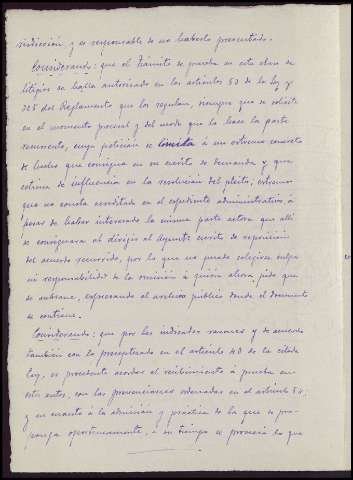 jurisdicción y es responsable de no haberlo presentado.
Considerando: que el trámite de prueba en esta clase de
litigios se halla autorizado en los artículos 50 de la ley y
325 del Reglamento que los regulan, siempre que se solicite
en el momento procesal y del modo que lo hace la parte
recurrente, cuya petición se limita a un extremo concreto
de hecho que consigna en su escrito de demanda y que
estima de influencia en la resolución del pleito, extremo
que no consta acreditado en el expediente administrativo á
pesar de haber interesado la misma parte actora que allí
se consignara al dirigir al Ayunt.º escrito de reposición
del acuerdo recurrido, por lo que no puede colegirse culpa
ni responsabilidad de la omisión á quién ahora pide que
se subsane, expresando el archivo público donde el documento
se contiene.
Considerando: que por las indicadas razones y de acuerdo
también con lo preceptuado en el artículo 48 de la citada
ley, es procedente acordar el recibimiento á prueba en
estos autos, con las prevenciones ordenadas en el artículo 54
y en cuanto á la admisión y práctica de la que se pro-
ponga oportunamente, á su tiempo se proveerá lo que